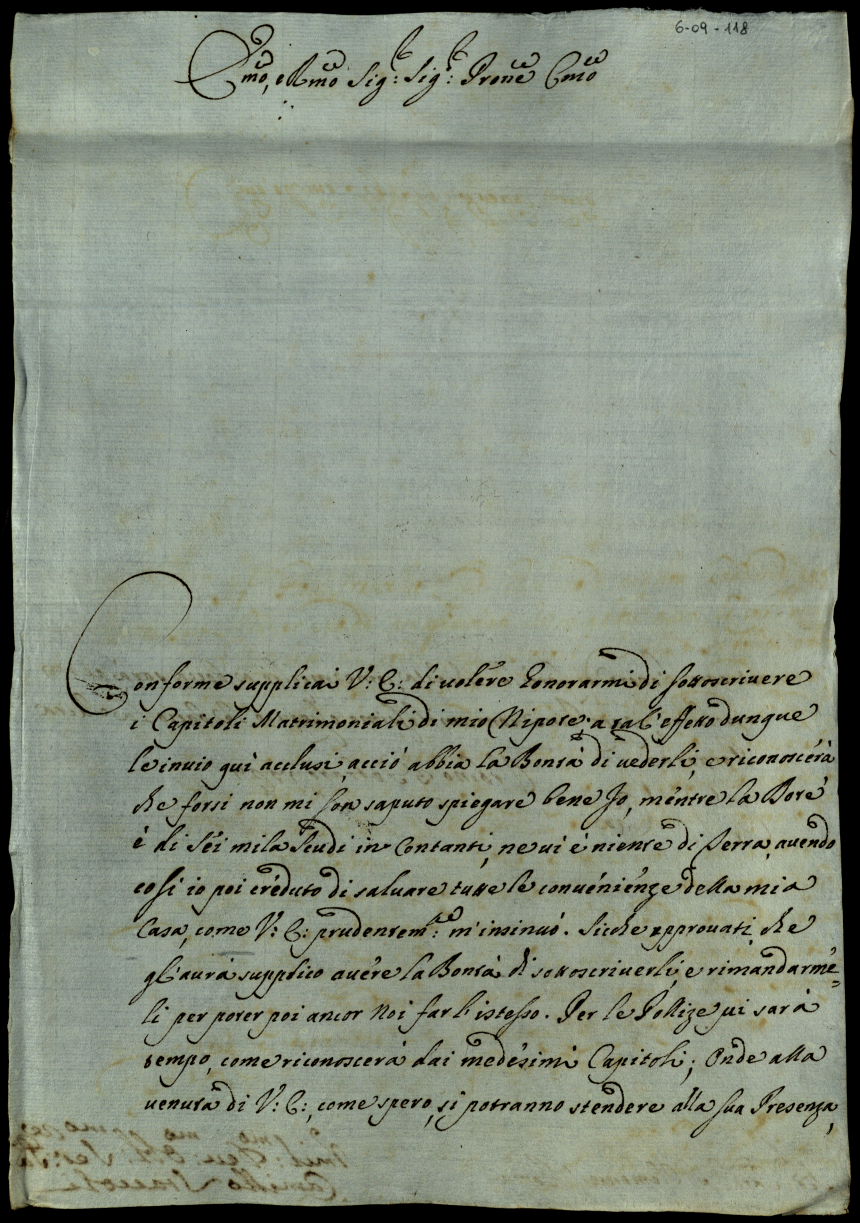 6-09-118
Emo, e Rmo Sig: Sig: Prone Cmo
Conforme supplicai V: E: di volére honorarmi di sottoscrivere
i Capitoli Matrimoniali di mio Nipote; a tal' effetto dunque
le invio qui acclusi, acciò abbia la Bontà di vederli, e riconoscérà
che forsi non mi son saputo spiegare bene Io, méntre la Dote
è di séi mila scudi in Contanti, ne vi è niente di Terra, avendo
cosi io poi créduto di salvare tutte le convénienze della mia
Casa, come V: E: prudentemte: m'insinuò. Sicche approvati, che
gl'avrà supplico avére la Bontà di sottoscriverli, e rimandarmé=
li per poter poi ancor Noi far l'istesso. Per le Polize vi sarà
tempo, come riconoscerà dai medésimi Capitoli; Onde alla
venuta di V: E:, come spero, si potranno stendere alla sua Presenza,